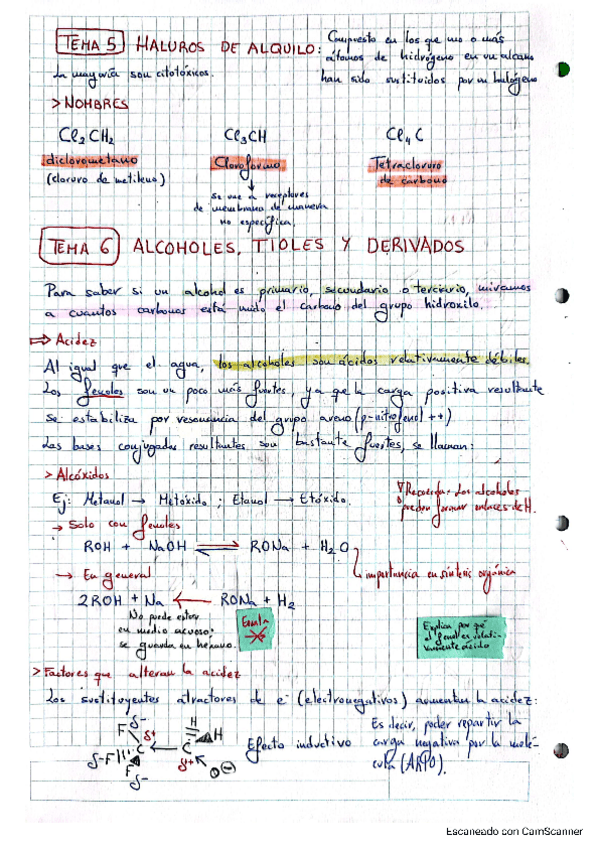 TEMA 5 HALUROS DE ALQUILO: Compuesto en los que uno o más
átomos de hidrógeno en un alcano
La mayoría son citotóxicos. han sido sustituidos por un halógeno
> NOMBRES
Cl2CH2 Cl3CH Cl4C
diclorometano Cloroformo Tetracloruro
(cloruro de metileno) de carbono
se une a receptores
de membrana de manera
no específica.
TEMA 6 ALCOHOLES, TIOLES Y DERIVADOS
Para saber si un alcohol es primario, secundario o terciario, miramos
a cuantos carbonos está unido el carbono del grupo hidroxilo.
⇒ Acidez
Al igual que el agua, los alcoholes son ácidos relativamente débiles.
Los fenoles son un poco más fuertes, ya que la carga positiva resultante
se estabiliza por resonancia del grupo areno (p-nitrofenol ++)
Las bases conjugadas resultantes son bastante fuertes, se llaman:
> Alcóxidos
Ej: Metanol → Metóxido ; Etanol → Etóxido.
Recuerda: Los alcoholes
pueden formar enlaces de H.
→ Solo con fenoles
ROH + NaOH ⇌ RONa + H2O
importancia en síntesis orgánica
→ En general
2ROH + Na ← RONa + H2
No puede estar
en medio acuoso:
se guarda en hexano.
Explica por qué
el fenol es relati-
vamente ácido
> Factores que alteran la acidez
Los sustituyentes atractores de e- (electronegativos) aumentan la acidez:
δ- F δ+ C ← C H H
δ-F F δ- δ+ Efecto inductivo
Es decir, poder repartir la
carga negativa por la molé-
cula (ARPO).
Escaneado con CamScanner